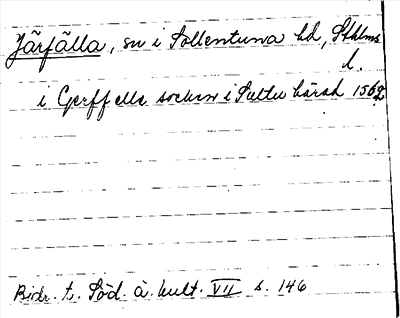 Järfälla, sn i Sollentuna hd, Sthlms
l.
i Gerffelle socken i Sollu härad 1562
Bidr. t. Söd. å. kult. VII s. 146